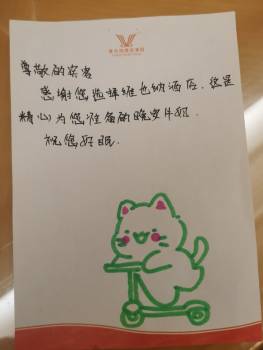 尊敬的宾客
感谢您选择维也纳酒店.这是
精心为您准备的晚安牛奶.
祝您好眠.